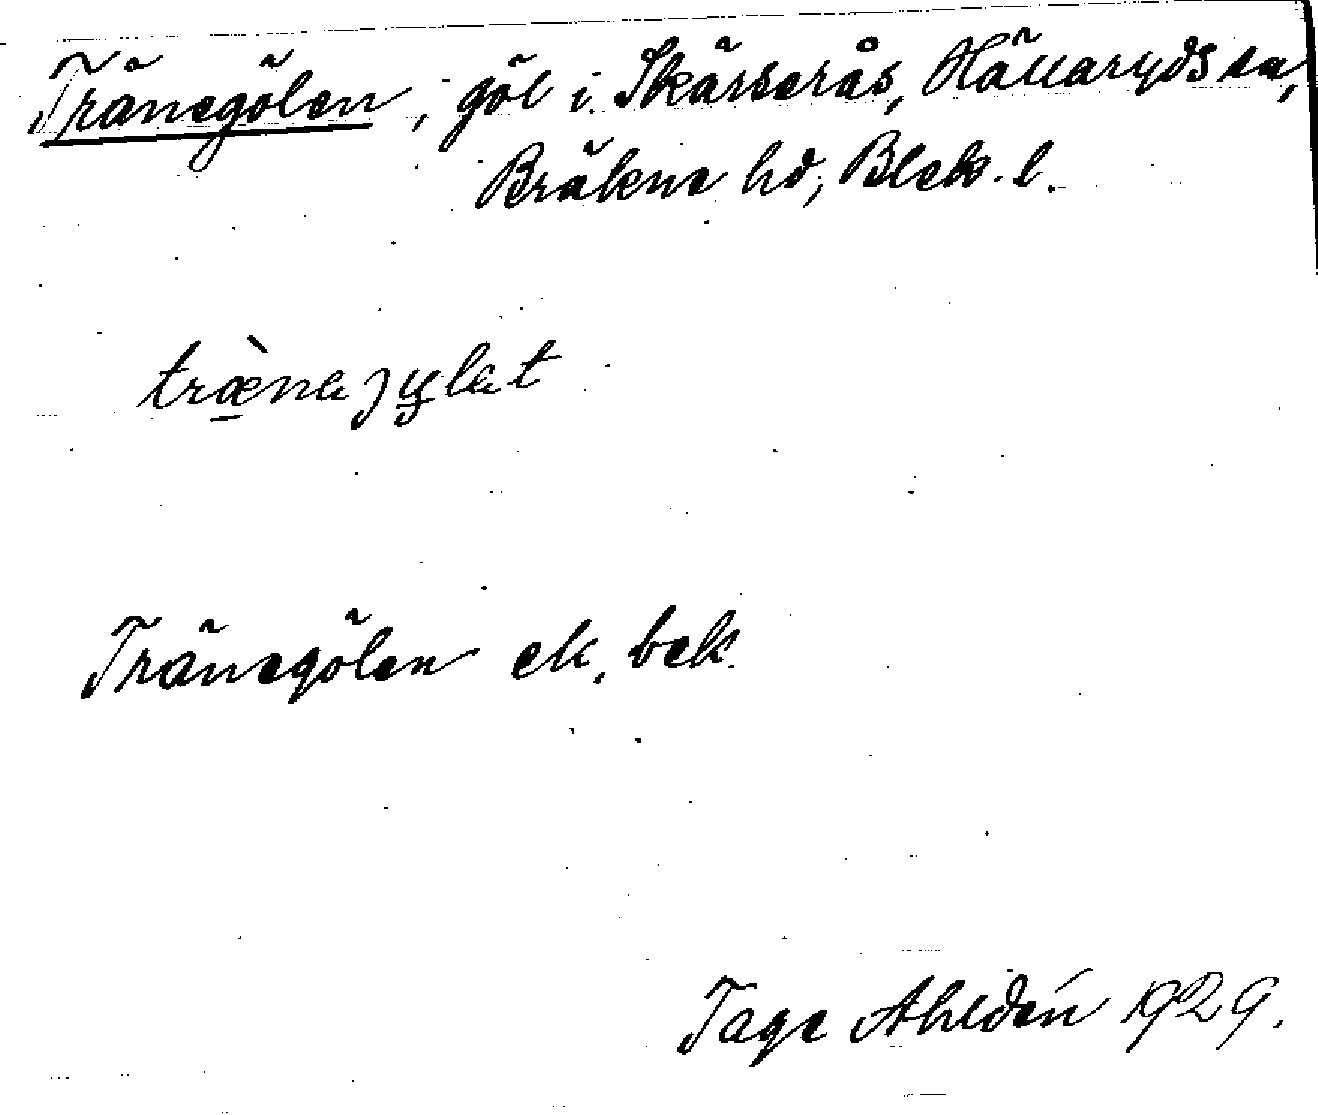 Tränegölen, göl i Skärserås, Hällaryds sn,
Bräkne hd, Blek. l.
træ̀nagylat
Tränegölen ek. bek.
Tage Ahldén 1929.